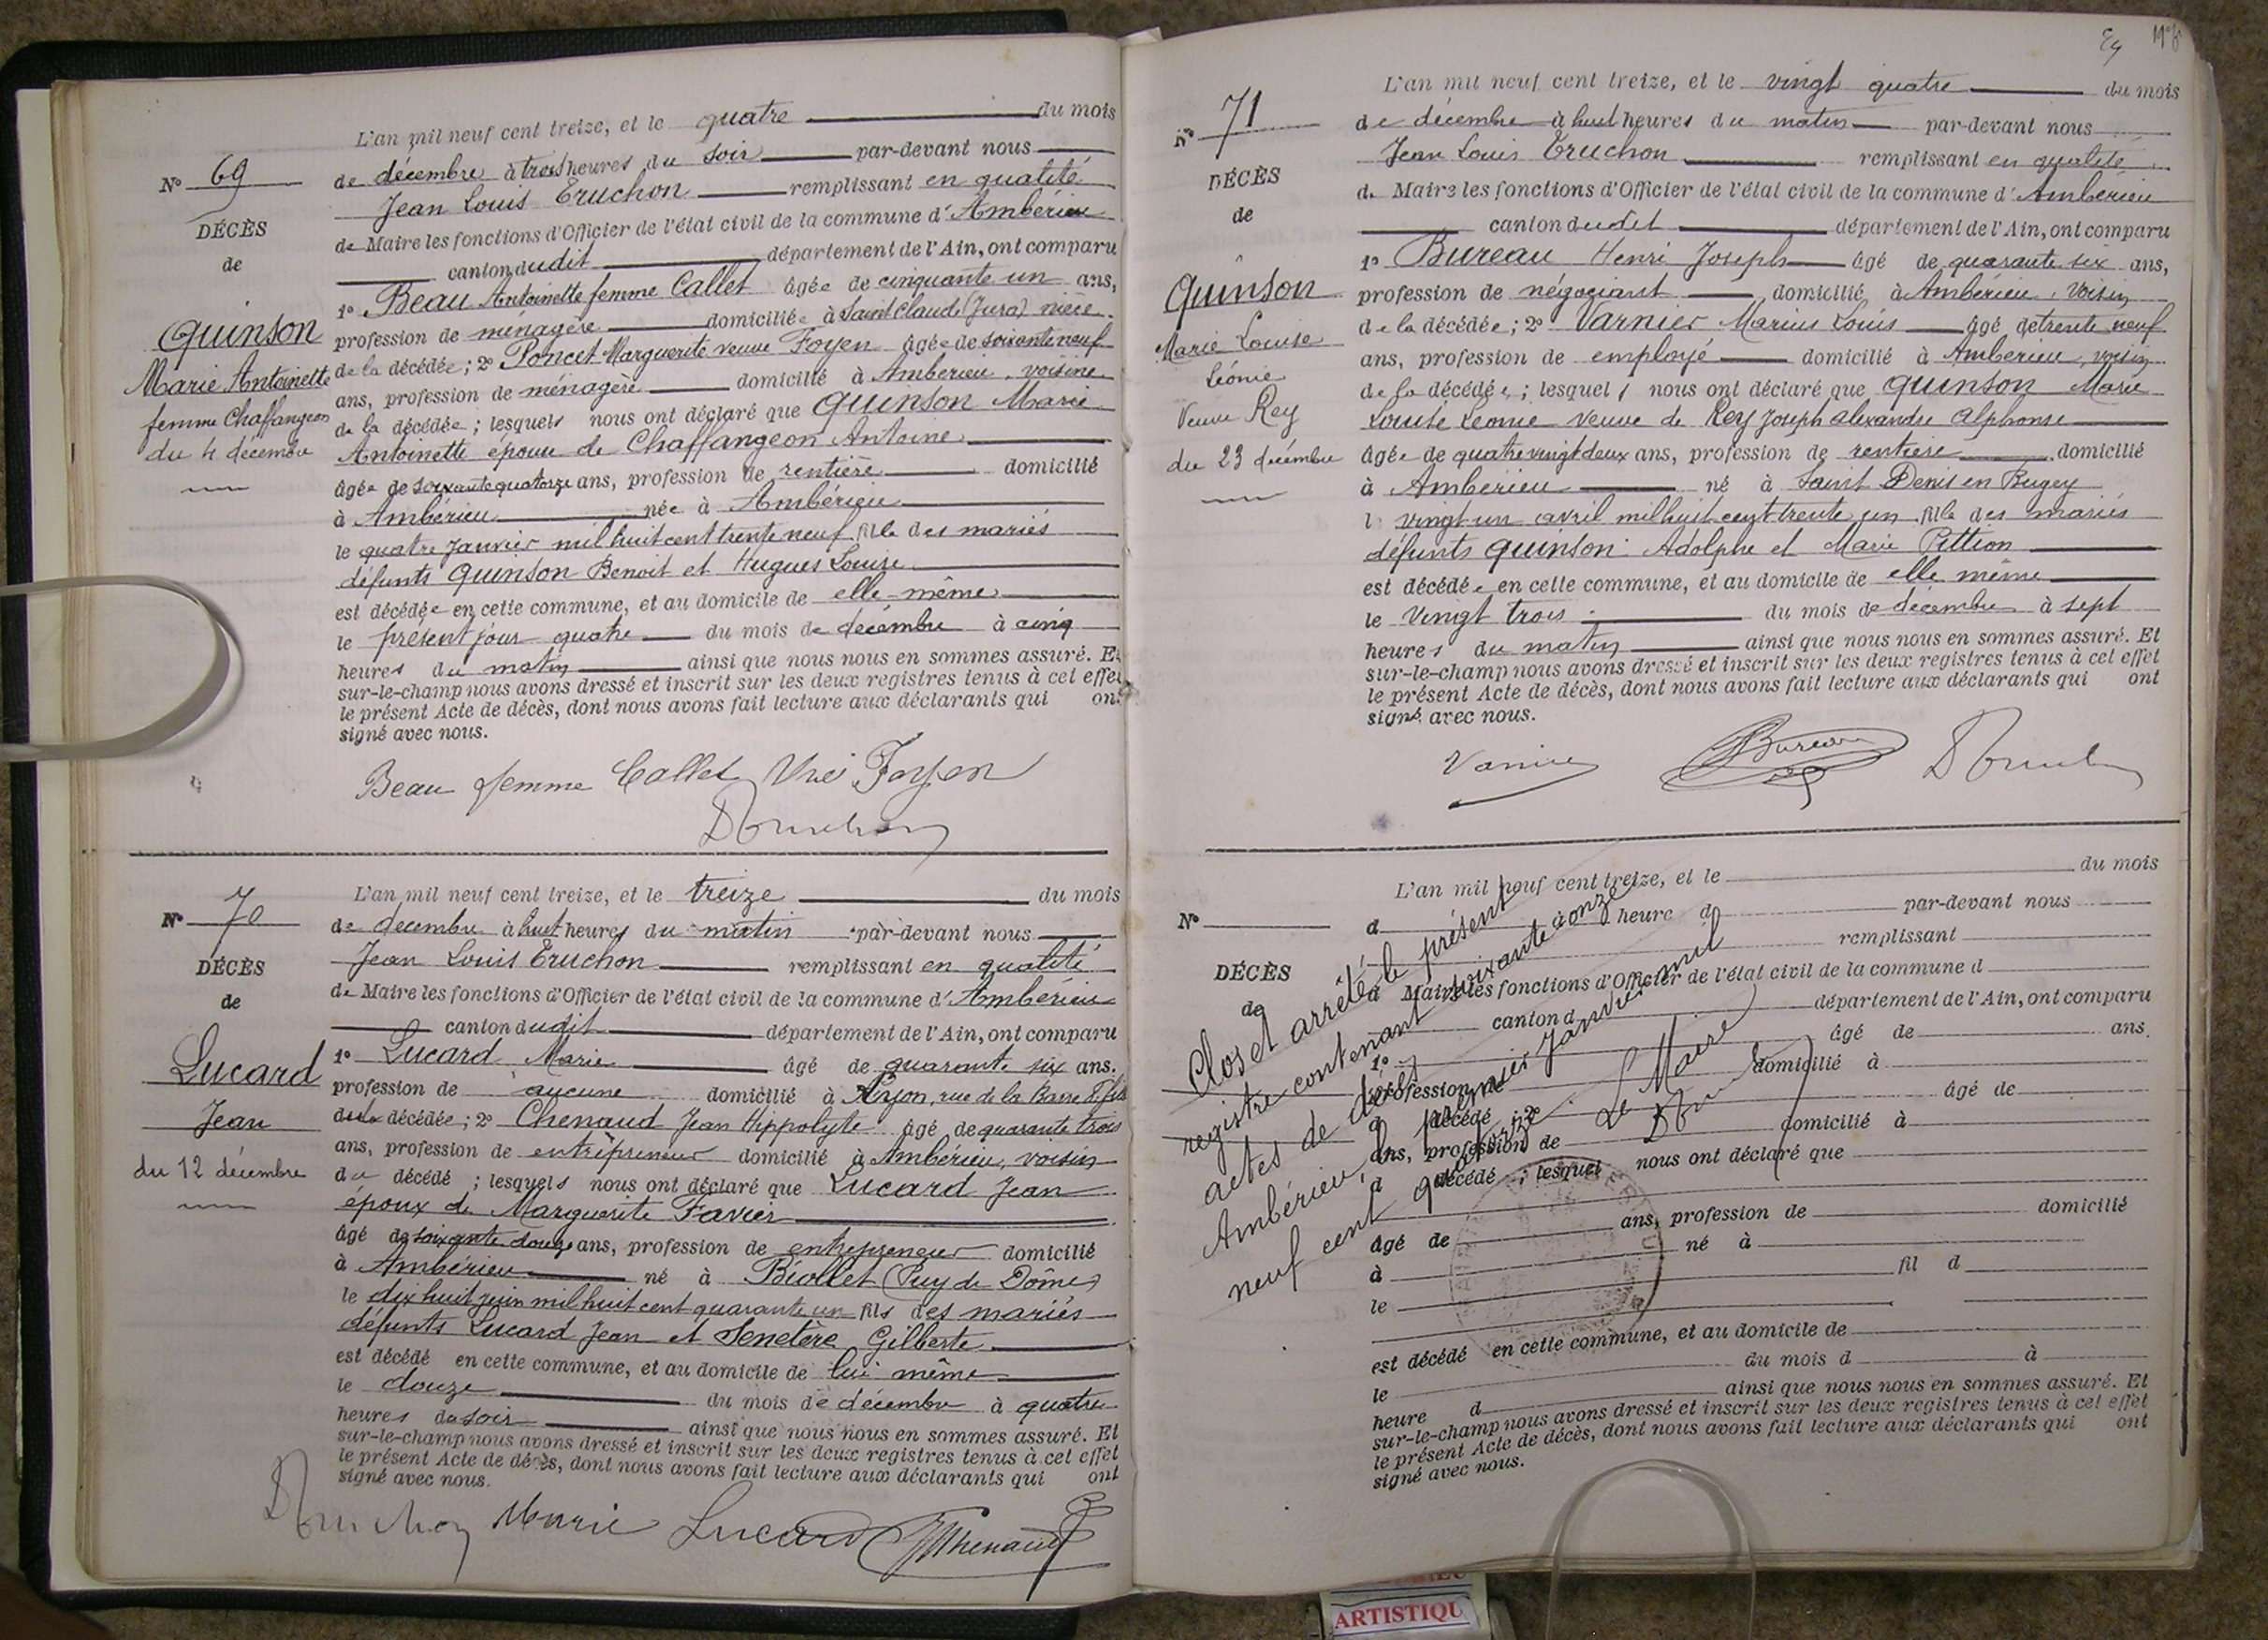 L'an mil neuf cent treize, et le quatre du mois
de décembre à trois heures du soir par-devant nous
Jean Louis Eruchon remplissant en qualité
de Maire les fonctions d'Officier de l'état civil de la commune d'Ambérieu
canton dudit département de l'Ain, ont comparu
1º Beau Antoinette femme Callet âgée de cinquante un ans,
profession de ménagère domiciliée à Saint Claude (Jura) nièce
de la décédée; 2º Poncet Marguerite veuve Foyen âgée de soixante neuf
ans, profession de ménagère domicilié à Ambérieu, voisine
de la décédée; lesquels nous ont déclaré que Quinson Marie
Antoinette épouse de Chaffangeon Antoine
âgée de soixante quatorze ans, profession de rentière domicilié
à Ambérieu née à Ambérieu
le quatre janvier mil huit cent trente neuf fille des mariés
défunts Quinson Benoit et Hugues Louise
est décédée en cette commune, et au domicile de elle-même
le présent jour quatre du mois de décembre à cinq
heures du matin ainsi que nous nous en sommes assuré. Et
sur-le-champ nous avons dressé et inscrit sur les deux registres tenus à cet effet
le présent Acte de décès, dont nous avons fait lecture aux déclarants qui ont
signé avec nous.
Nº 69
DÉCÈS
de
Quinson
Marie Antoinette
femme Chaffangeon
du 4 décembre
Beau femme Callet Vve Foyen
Nº 70
DÉCÈS
de
Lucard
Jean
du 12 décembre
L'an mil neuf cent treize, et le treize du mois
de décembre à huit heures du matin par-devant nous
Jean Louis Eruchon remplissant en qualité
de Maire les fonctions d'Officier de l'état civil de la commune d'Ambérieu
canton dudit département de l'Ain, ont comparu
1º Lucard Marie âgé de quarante six ans.
profession de aucune domicilié à Lyon, rue de la Barre
décédée; 2º Chenaud Jean Hippolyte âgé de quarante trois
ans, profession de entrepreneur domicilié à Ambérieu, voisin
du décédé; lesquels nous ont déclaré que Lucard Jean
époux de Marguerite Favier
âgé de soixante douze ans, profession de entrepreneur domicilié
à Ambérieu né à Biollet (Puy de Dôme)
le dix huit juin mil huit cent quarante un fils des mariés
défunts Lucard Jean et Senetère Gilberte
est décédé en cette commune, et au domicile de lui même
le douze du mois de décembre à quatre
heures du soir ainsi que nous nous en sommes assuré. Et
sur-le-champ nous avons dressé et inscrit sur les deux registres tenus à cet effet
le présent Acte de décès, dont nous avons fait lecture aux déclarants qui ont
signé avec nous.
Marie Lucard
Nº 71
DÉCÈS
de
Quinson
Marie Louise
Léonie
Veuve Rey
du 23 décembre
L'an mil neuf cent treize, et le vingt quatre du mois
de décembre à huit heures du matin par-devant nous
Jean Louis Eruchon remplissant en qualité
de Maire les fonctions d'Officier de l'état civil de la commune d'Ambérieu
canton dudit département de l'Ain, ont comparu
1º Bureau Henri Joseph âgé de quarante six ans,
profession de négociant domicilié à Ambérieu, voisin
de la décédée; 2º Varnier Marius Louis âgé de trente neuf
ans, profession de employé domicilié à Ambérieu, voisin
de la décédée; lesquels nous ont déclaré que Quinson Marie
Louise Léonie veuve de Rey Joseph Alexandre Alphonse
âgée de quatre vingt deux ans, profession de rentière domicilié
à Ambérieu né à Saint Denis en Bugey
l vingt un avril mil huit cent trente un fille des mariés
défunts Quinson Adolphe et Marie Pittion
est décédée en cette commune, et au domicile de elle même
le vingt trois du mois de décembre à sept
heures du matin ainsi que nous nous en sommes assuré. Et
sur-le-champ nous avons dressé et inscrit sur les deux registres tenus à cet effet
le présent Acte de décès, dont nous avons fait lecture aux déclarants qui ont
signé avec nous.
Bureau
Nº
DÉCÈS
de
L'an mil neuf cent treize, et le du mois
d heure d par-devant nous
remplissant
d Maire les fonctions d'Officier de l'état civil de la commune d
canton d département de l'Ain, ont comparu
1º âgé de ans.
profession de domicilié à
d décédé ; 2º âgé de
ans, profession de domicilié à
d décédé ; lesquel nous ont déclaré que
âgé de ans, profession de domicilié
à né à
le fil d
est décédé en cette commune, et au domicile de
le du mois d à
heure d ainsi que nous nous en sommes assuré. Et
sur-le-champ nous avons dressé et inscrit sur les deux registres tenus à cet effet
le présent Acte de décès, dont nous avons fait lecture aux déclarants qui ont
signé avec nous.
Clos et arrêté le présent
registre contenant soixante onze
actes de décès
Ambérieu, le premier janvier mil
neuf cent quatorze
Le Maire
ARTISTIQU